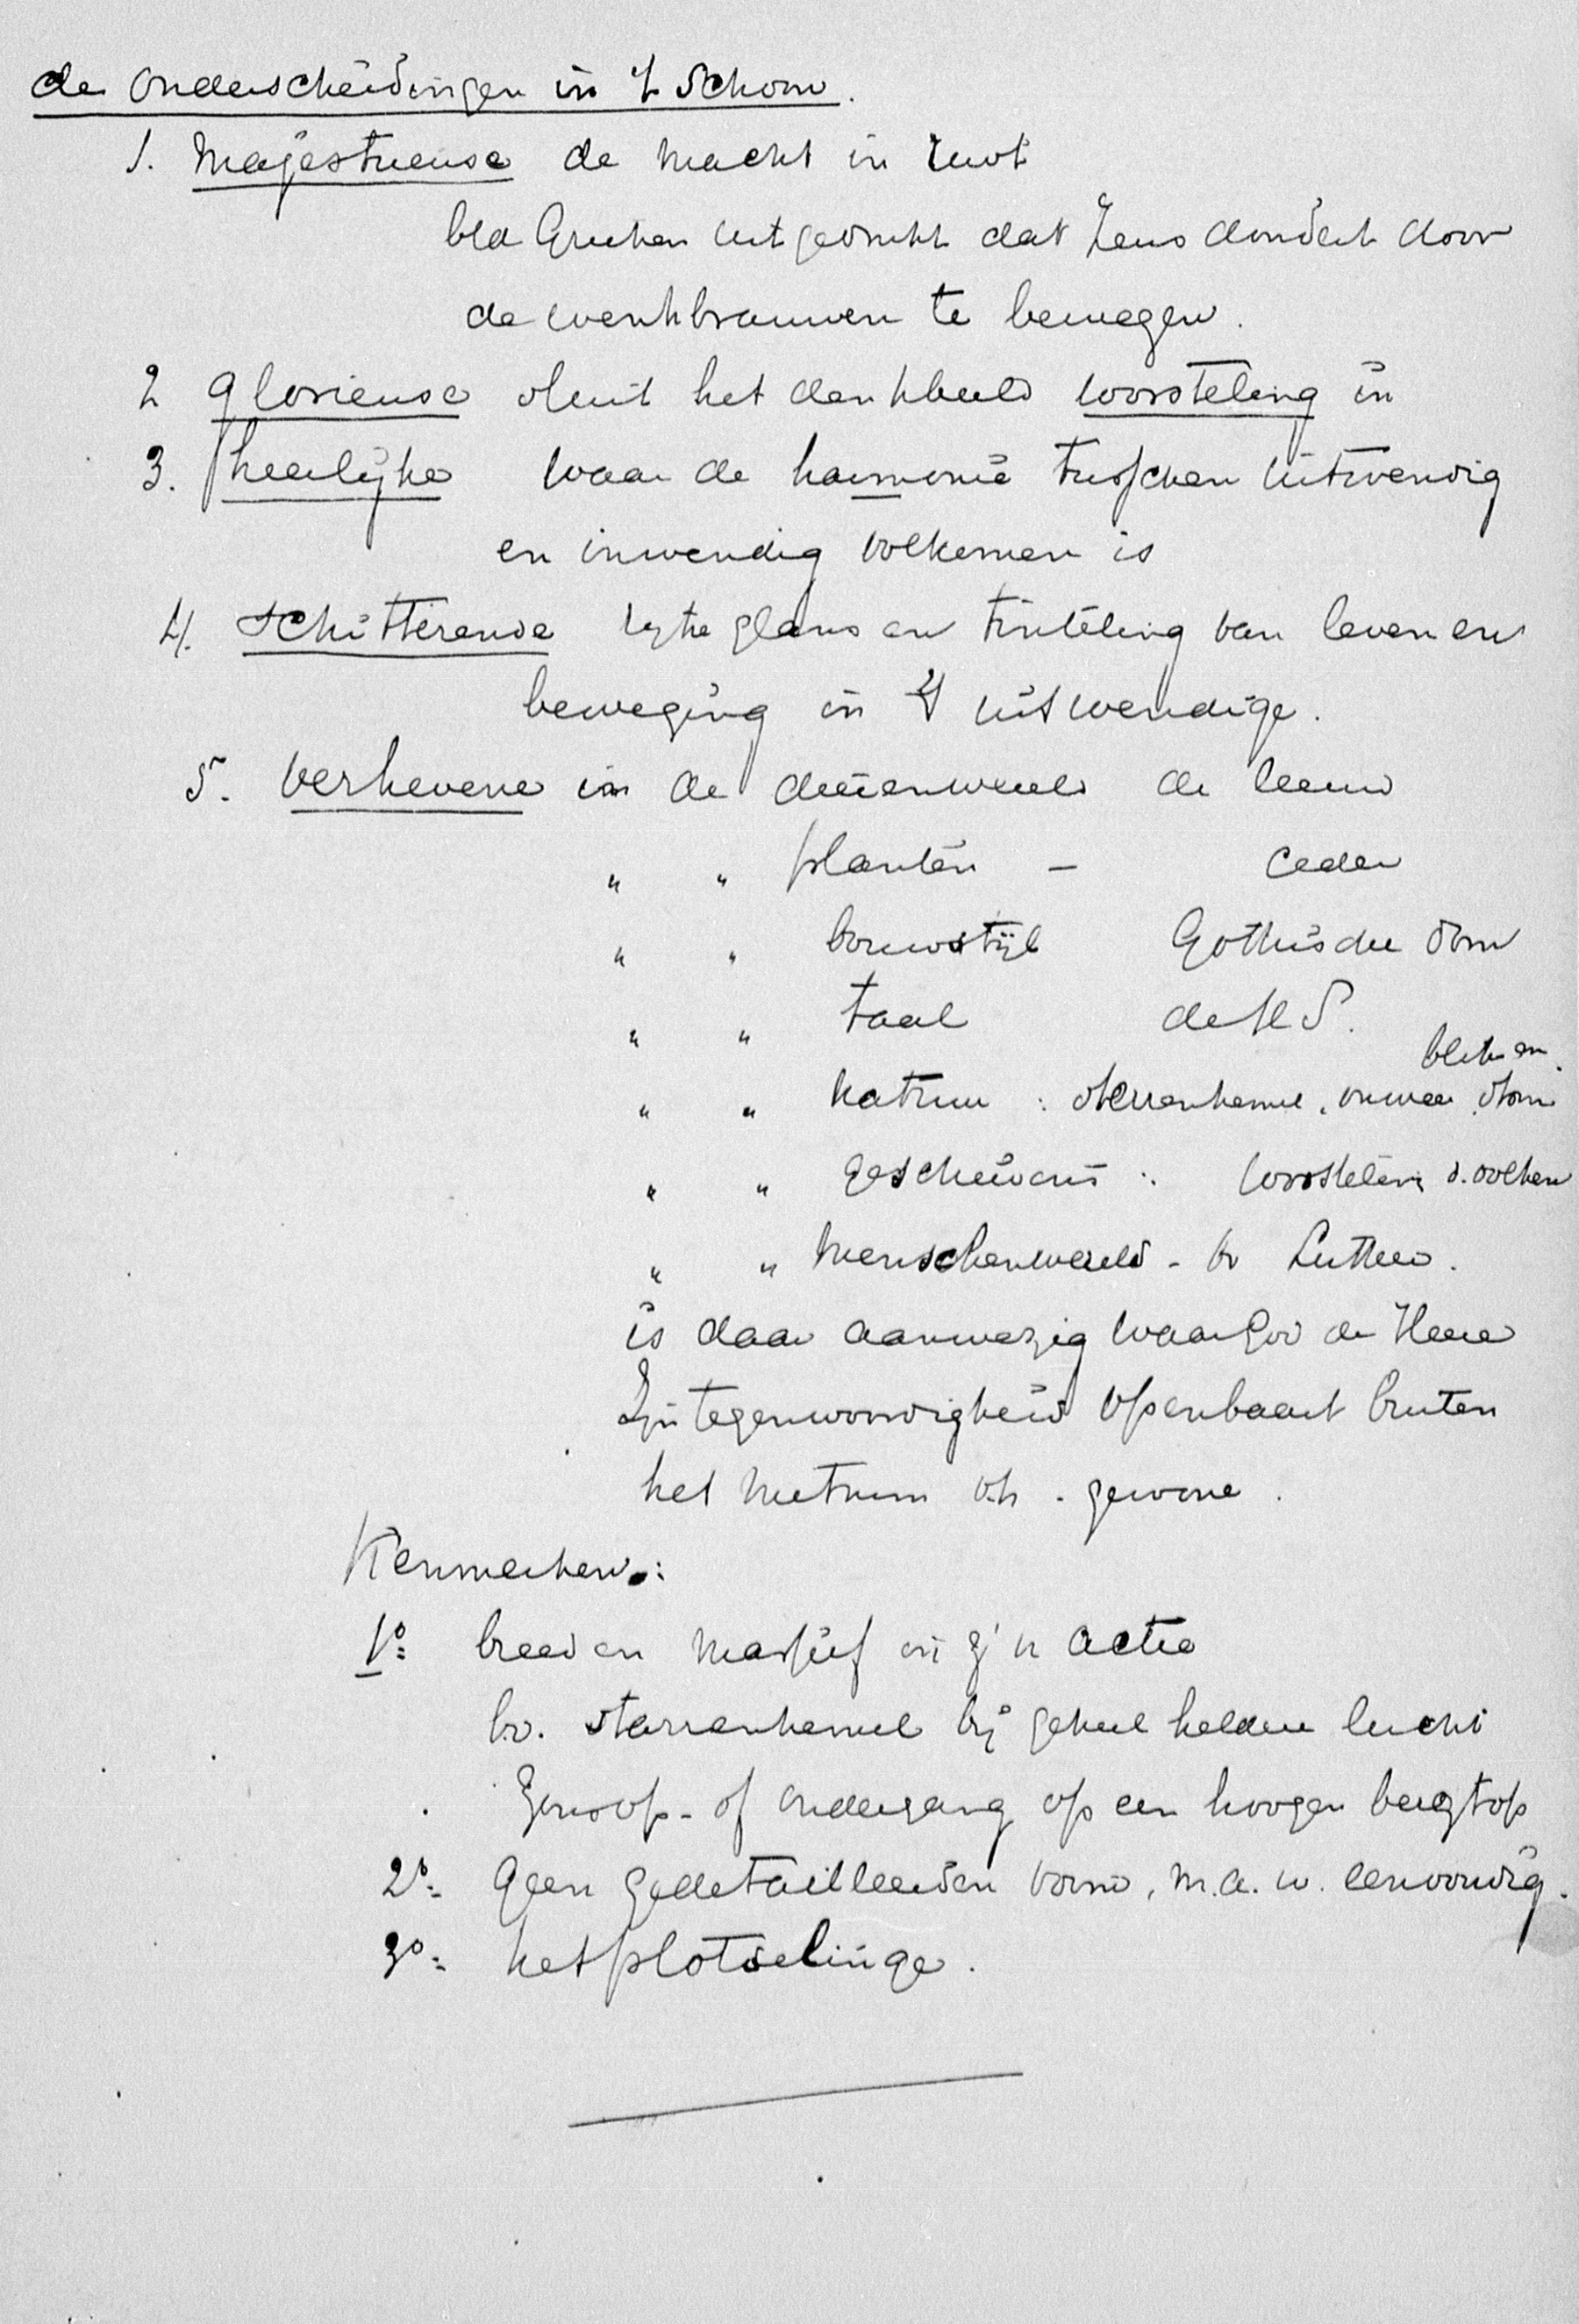 de onderscheidingen in 't Schoon.
1. Majestueuse de macht in rust
bld Grieken uitgedrukt dat Zeus dondert door
de wenkbrauwen te bewegen.
2 glorieuse sluit het denkbeeld worsteling in
3. heerlijke waar de harmonie tusschen uitwendig
en inwendig volkomen is
4. schitterende rijke glans en tinteling van leven en
beweging in 't uitwendige.
5. verhevene in de dierenwereld de leeuw
" " planten - ceder
" " bouwstijl Gothische dom
" " taal de H S.
bliksem
" " natuur : sterrenhemel, onweer, storm
" " geschiedenis : worsteling d. volken
" " menschenwereld - bv Luther.
is daar aanwezig waar God de Heere
Zijn tegenwoordigheid openbaart buiten
het metrum v.h. gewone.
Kenmerken:
1º= breed en massief in z'n actie
b.v. sterrenhemel bij geheel heldere lucht
Zonsop- of ondergang op een hoogen bergtop
2º= geen gedetailleerden vorm, m.a.w. eenvoudig.
3º= het plotselinge.